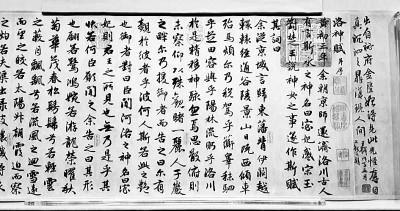 洛神賦 并序
黃初三年余朝京師還濟洛川古人
有言斯水之神名曰宓妃感宋玉
對楚王說神女之事遂作斯賦
其詞曰
余從京域言歸東藩背伊闕越
轘轅經通谷陵景山日既西傾車
殆馬煩尔乃稅駕乎蘅皋秣駟
乎芝田容與乎陽林流眄乎洛川
於是精移神駭忽焉思散俯則
未察仰以殊觀睹一麗人于巖
之畔尔乃援御者而告之曰尔有
覿於彼者乎彼何人斯若此之艷
也御者對曰臣聞河洛之神名曰宓
妃則君王之所見也無乃是乎其
狀若何臣願聞之余告之曰其形
也翩若驚鴻婉若游龍榮曜秋
菊華茂春松髣髴兮若輕雲
之蔽月飄颻兮若流風之迴雪遠
而望之皎若太陽升朝霞迫而察
之灼若夫蕖出淥波